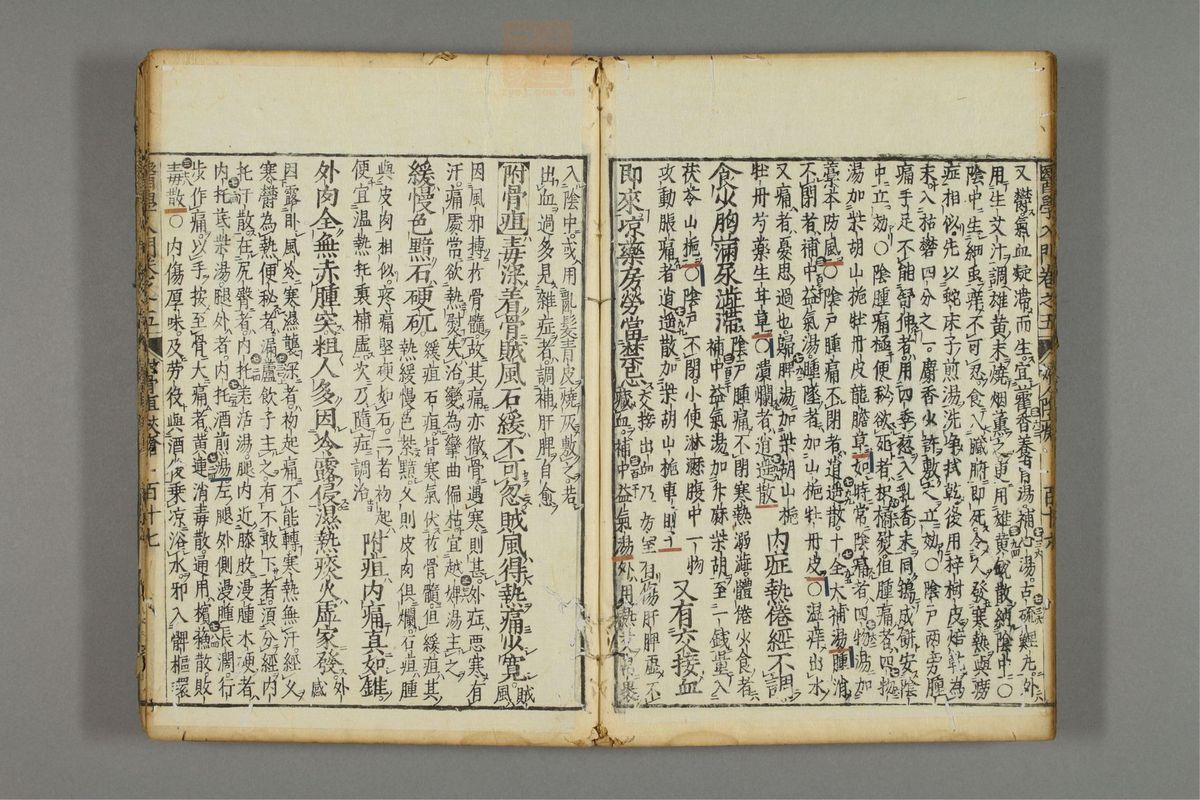 又鬱氣血凝滯而生宜藿香養胃湯補心湯古硫鯉丸外
用生艾汁調雄黃末燒烟薰之更用雄黃銳散納陰中○
陰中生細虫痒不可忍食入臟腑即死令人發寒熱與癆
症相似先以蛇床子煎湯洗淨拭乾後用梓樹皮焙乾為
末入枯礬四分之一麝香少許敷之立效○陰戶兩旁腫
痛手足不能舒伸者用四季葱入乳香末同搗成餅安陰
中立効○陰腫痛極便秘欲死者枳橘熨但腫痛者四物
湯加柴胡山梔牡丹皮龍膽草如時常陰痛者四物湯加
藁本防風○陰戶腫痛不閉者逍遙散十全大補湯腫消
不閉者補中益氣湯腫墜者加山梔牡丹皮○濕痒出水
又痛者憂思過也歸脾湯加柴胡山梔
牡丹芍藥生甘草○潰爛者逍遙散
內症熱倦經不調
食少胸滿尿澁滯
陰戶腫痛不閉寒熱溺澁體倦少食者
補中益氣湯加升麻柴胡至一錢量入
茯苓山梔○陰戶不閉小便淋瀝腹中一物
攻動脹痛者逍遙散加柴胡山梔車前子
又有交接血
即來凉藥房勞當禁忌
交接出血乃房室有傷肝脾虛不
藏血補中益氣湯外用熱艾帛裹
入陰中或用亂髮青皮燒灰敷之若
出血過多見雜症者調補肝脾自愈
附骨疽毒深着骨賊風石緩不可忽賊風得熱痛少寬
賊風
因風邪搏於骨髓故其痛亦徹骨遇寒則甚外症惡寒有
汗痛處常欲熱熨失治變為攣曲偏枯宜越婢湯主之
緩慢色黯石硬矹
緩疽石疽皆寒氣伏於骨髓但緩疽其
熱緩慢色紫黯又則皮肉但爛石疽腫
與皮肉相似疼痛堅硬如石二者初起
便宜溫熱托裏補虛次乃隨症調治
附疽內痛真如錐
外肉全無赤腫突粗人多因冷露侵濕熱痰火虛家發
外感
因露臥風冷寒濕襲深者初起痛不能轉寒熱無汗經久
寒鬱為熱便秘者漏蘆飲子主之有不敢下者須分經內
托汗散在尻臀者內托羌活湯腿內近膝股漫腫木硬者
內托芪柴湯腿外者內托酒煎湯左腿外側漫腫長濶行
步作痛以手按至骨大痛者黃連消毒散通用檳蘇散敗
毒散○內傷厚味及勞役與酒後乘凉浴水邪入髀樞環
醫學入門卷之五
百十六
百十七